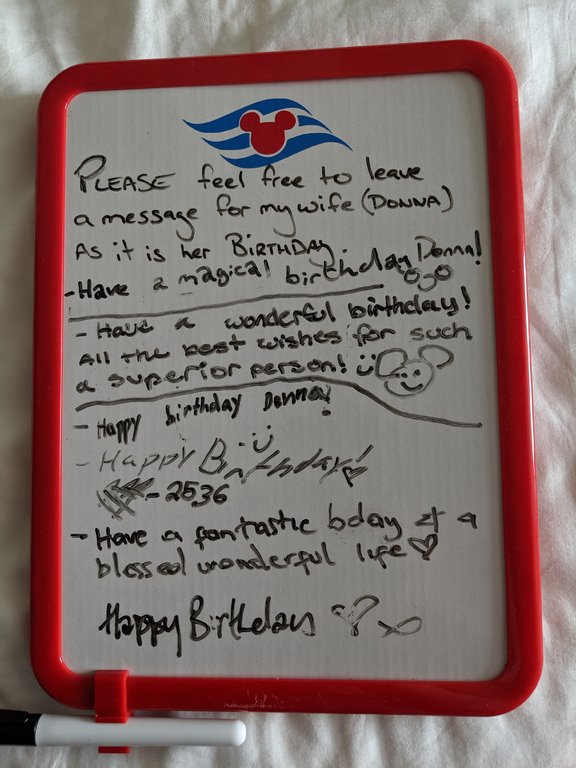 PLEASE feel free to leave
a message for my wife (DONNA)
As it is her BIRTHDAY.
- Have a magical birthday Donna!
- Have a wonderful birthday!
All the best wishes for such
a superior person!
- Happy birthday Donna!
- Happy Birthday!
- 2536
- Have a fantastic bday & a
blessed wonderful life
Happy Birthday